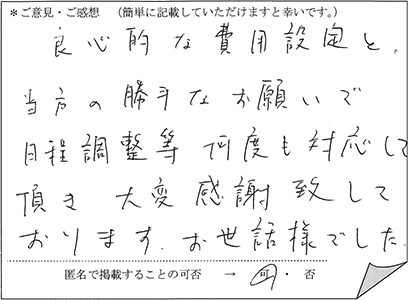 ＊ご意見・ご感想　（簡単に記載していただけますと幸いです。）
良心的な費用設定と、
当方の勝手なお願いで
日程調整等何度も対応して
頂き大変感謝致して
おります。お世話様でした。
匿名で掲載することの可否　→　可・否